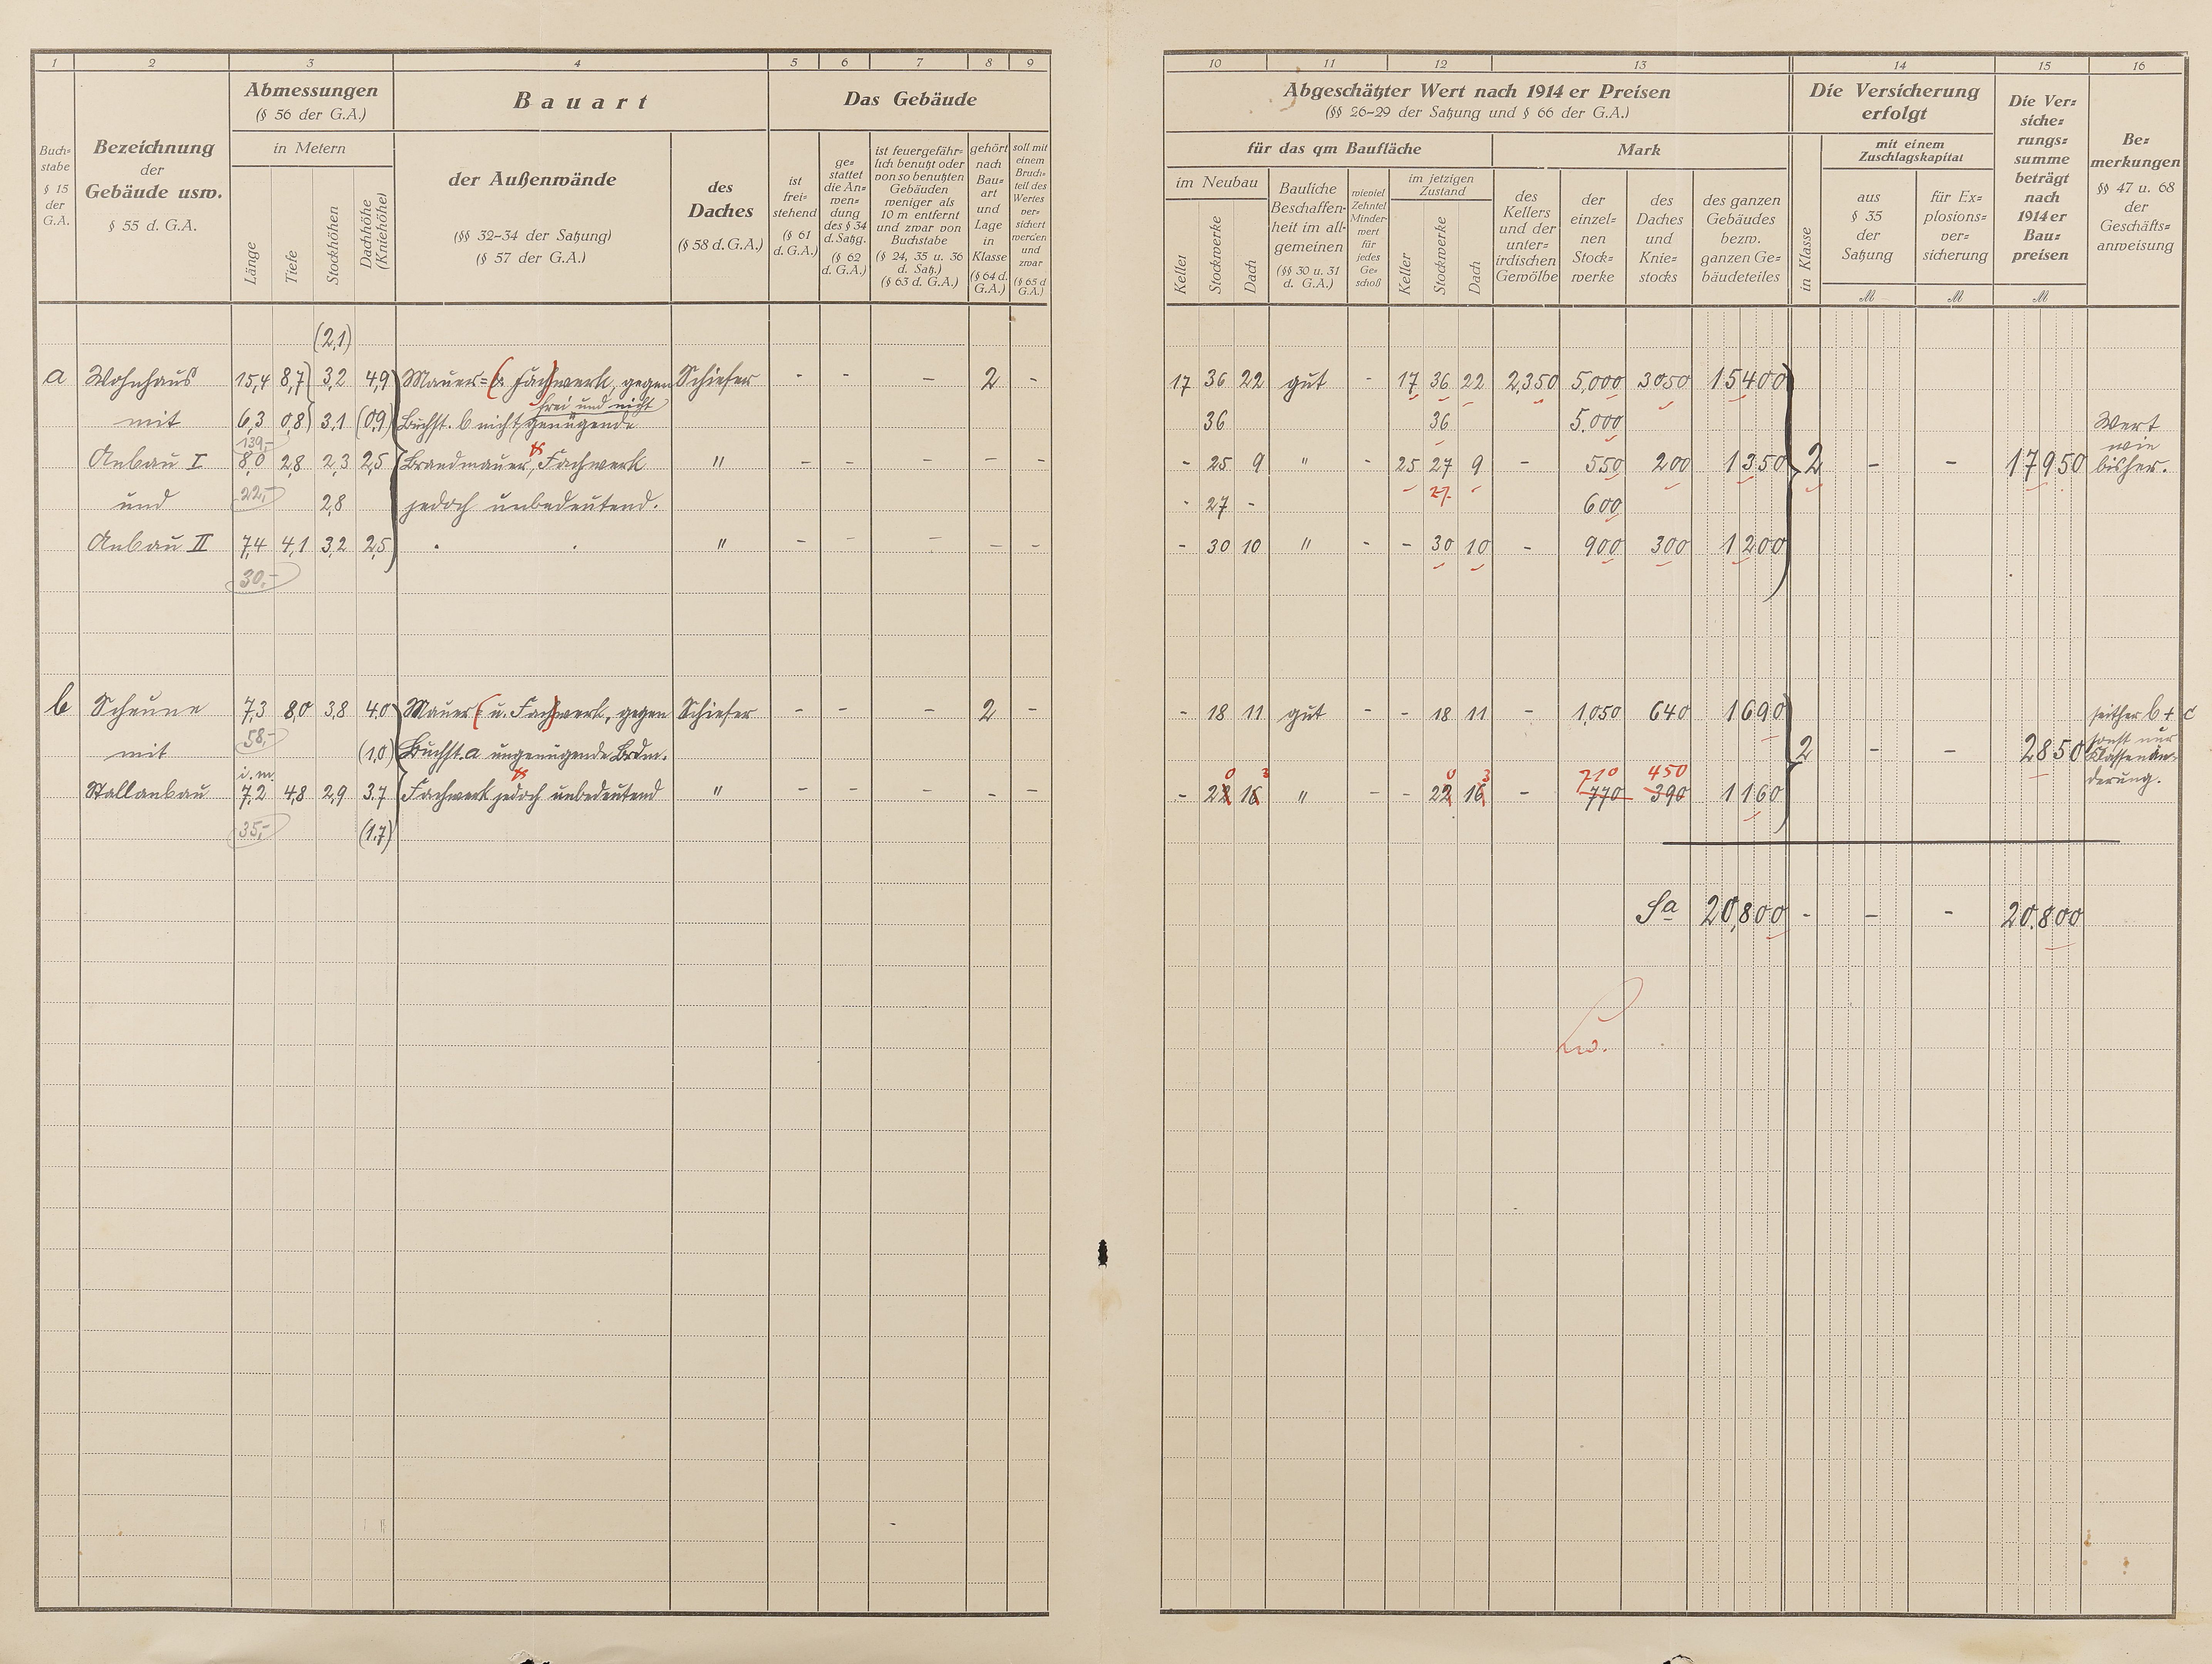 1 2 3 4 5 6 7 8 9
Abmessungen
(§ 56 der G.A.)
in Metern
Bauart
Das Gebäude
Buch=
stabe
§ 15
der
G.A.
Bezeichnung
der
Gebäude usw.
§ 55 d. G.A.
Länge
Tiefe
Stockhöhen
Dachhöhe
(Kniehöhe)
der Außenwände
(§§ 32-34 der Satzung)
(§ 57 der G.A.)
des
Daches
(§ 58 d. G.A.)
ist
frei=
stehend
(§ 61
d. G.A.)
ge=
stattet
die An=
wen=
dung
des § 34
d. Satzg.
(§ 62
d. G.A.)
ist feuergefähr=
lich benutzt oder
von so benutzten
Gebäuden
weniger als
10 m entfernt
und zwar von
Buchstabe
(§ 24, 35 u. 36
d. Satz.)
(§ 63 d. G.A.)
gehört
nach
Bau=
art
und
Lage
in
Klasse
(§ 64 d.
G.A.)
soll mit
einem
Bruch=
teil des
Wertes
ver=
sichert
werden
und
zwar
(§ 65 d
G.A.)
(2,1)
a Wohnhaus 15,4 8,7 3,2 4,9 Mauer= (u. Fach)werk, gegen Schiefer - - - 2 -
frei und nicht
mit 6,3 0,8 3,1 (0,9) Buchst. b nicht genügende
139,-
Anbau I 8,0 2,8 2,3 2,5 Brandmauer, Fachwerk " - - - - -
und 22,- 2,8 jedoch unbedeutend.
Anbau II 7,4 4,1 3,2 2,5 " - - - - -
30,-
b Scheune 7,3 8,0 3,8 4,0 Mauer (= u. Fach)werk, gegen Schiefer - - - 2 -
58,-
mit (1,0) Buchst. a ungenügende Brdm.
i. m.
Stallanbau 7,2 4,8 2,9 3,7 Fachwerk jedoch unbedeutend " - - - - -
35,- (1,7)
10 11 12 13 14 15 16
Abgeschätzter Wert nach 1914 er Preisen
(§§ 26-29 der Satzung und § 66 der G.A.)
für das qm Baufläche
Mark
im Neubau
Keller
Stockwerke
Dach
Bauliche
Beschaffen-
heit im all-
gemeinen
(§§ 30 u. 31
d. G.A.)
wieviel
Zehntel
Minder=
wert
für
jedes
Ge=
schoß
im jetzigen
Zustand
Keller
Stockwerke
Dach
des
Kellers
und der
unter=
irdischen
Gewölbe
der
einzel=
nen
Stock=
werke
des
Daches
und
Knie=
stocks
des ganzen
Gebäudes
bezw.
ganzen Ge=
bäudeteiles
Die Versicherung
erfolgt
in Klasse
mit einem
Zuschlagskapital
aus
§ 35
der
Satzung
für Ex=
plosions=
ver=
sicherung
M M M
Die Ver=
siche=
rungs=
summe
beträgt
nach
1914 er
Bau=
preisen
Be=
merkungen
§§ 47 u. 68
der
Geschäfts=
anweisung
17 36 22 gut - 17 36 22 2,350 5,000 3050 15400
36 36 5.000 Wert
wie
- 25 9 " - 25 27 9 - 550 200 1350 2 - - 17950 bisher.
- 27 - 27. 600
- 30 10 " - - 30 10 - 900 300 1200
- 18 11 gut - - 18 11 - 1,050 640 1690 seither b + c
sonst nur
2 - - 2850 Klassenän-
derung.
0 3 0 3 710 450
- 22 16 " - - 22 16 - 770 390 1160
Sa 20,800 - - - 20.800